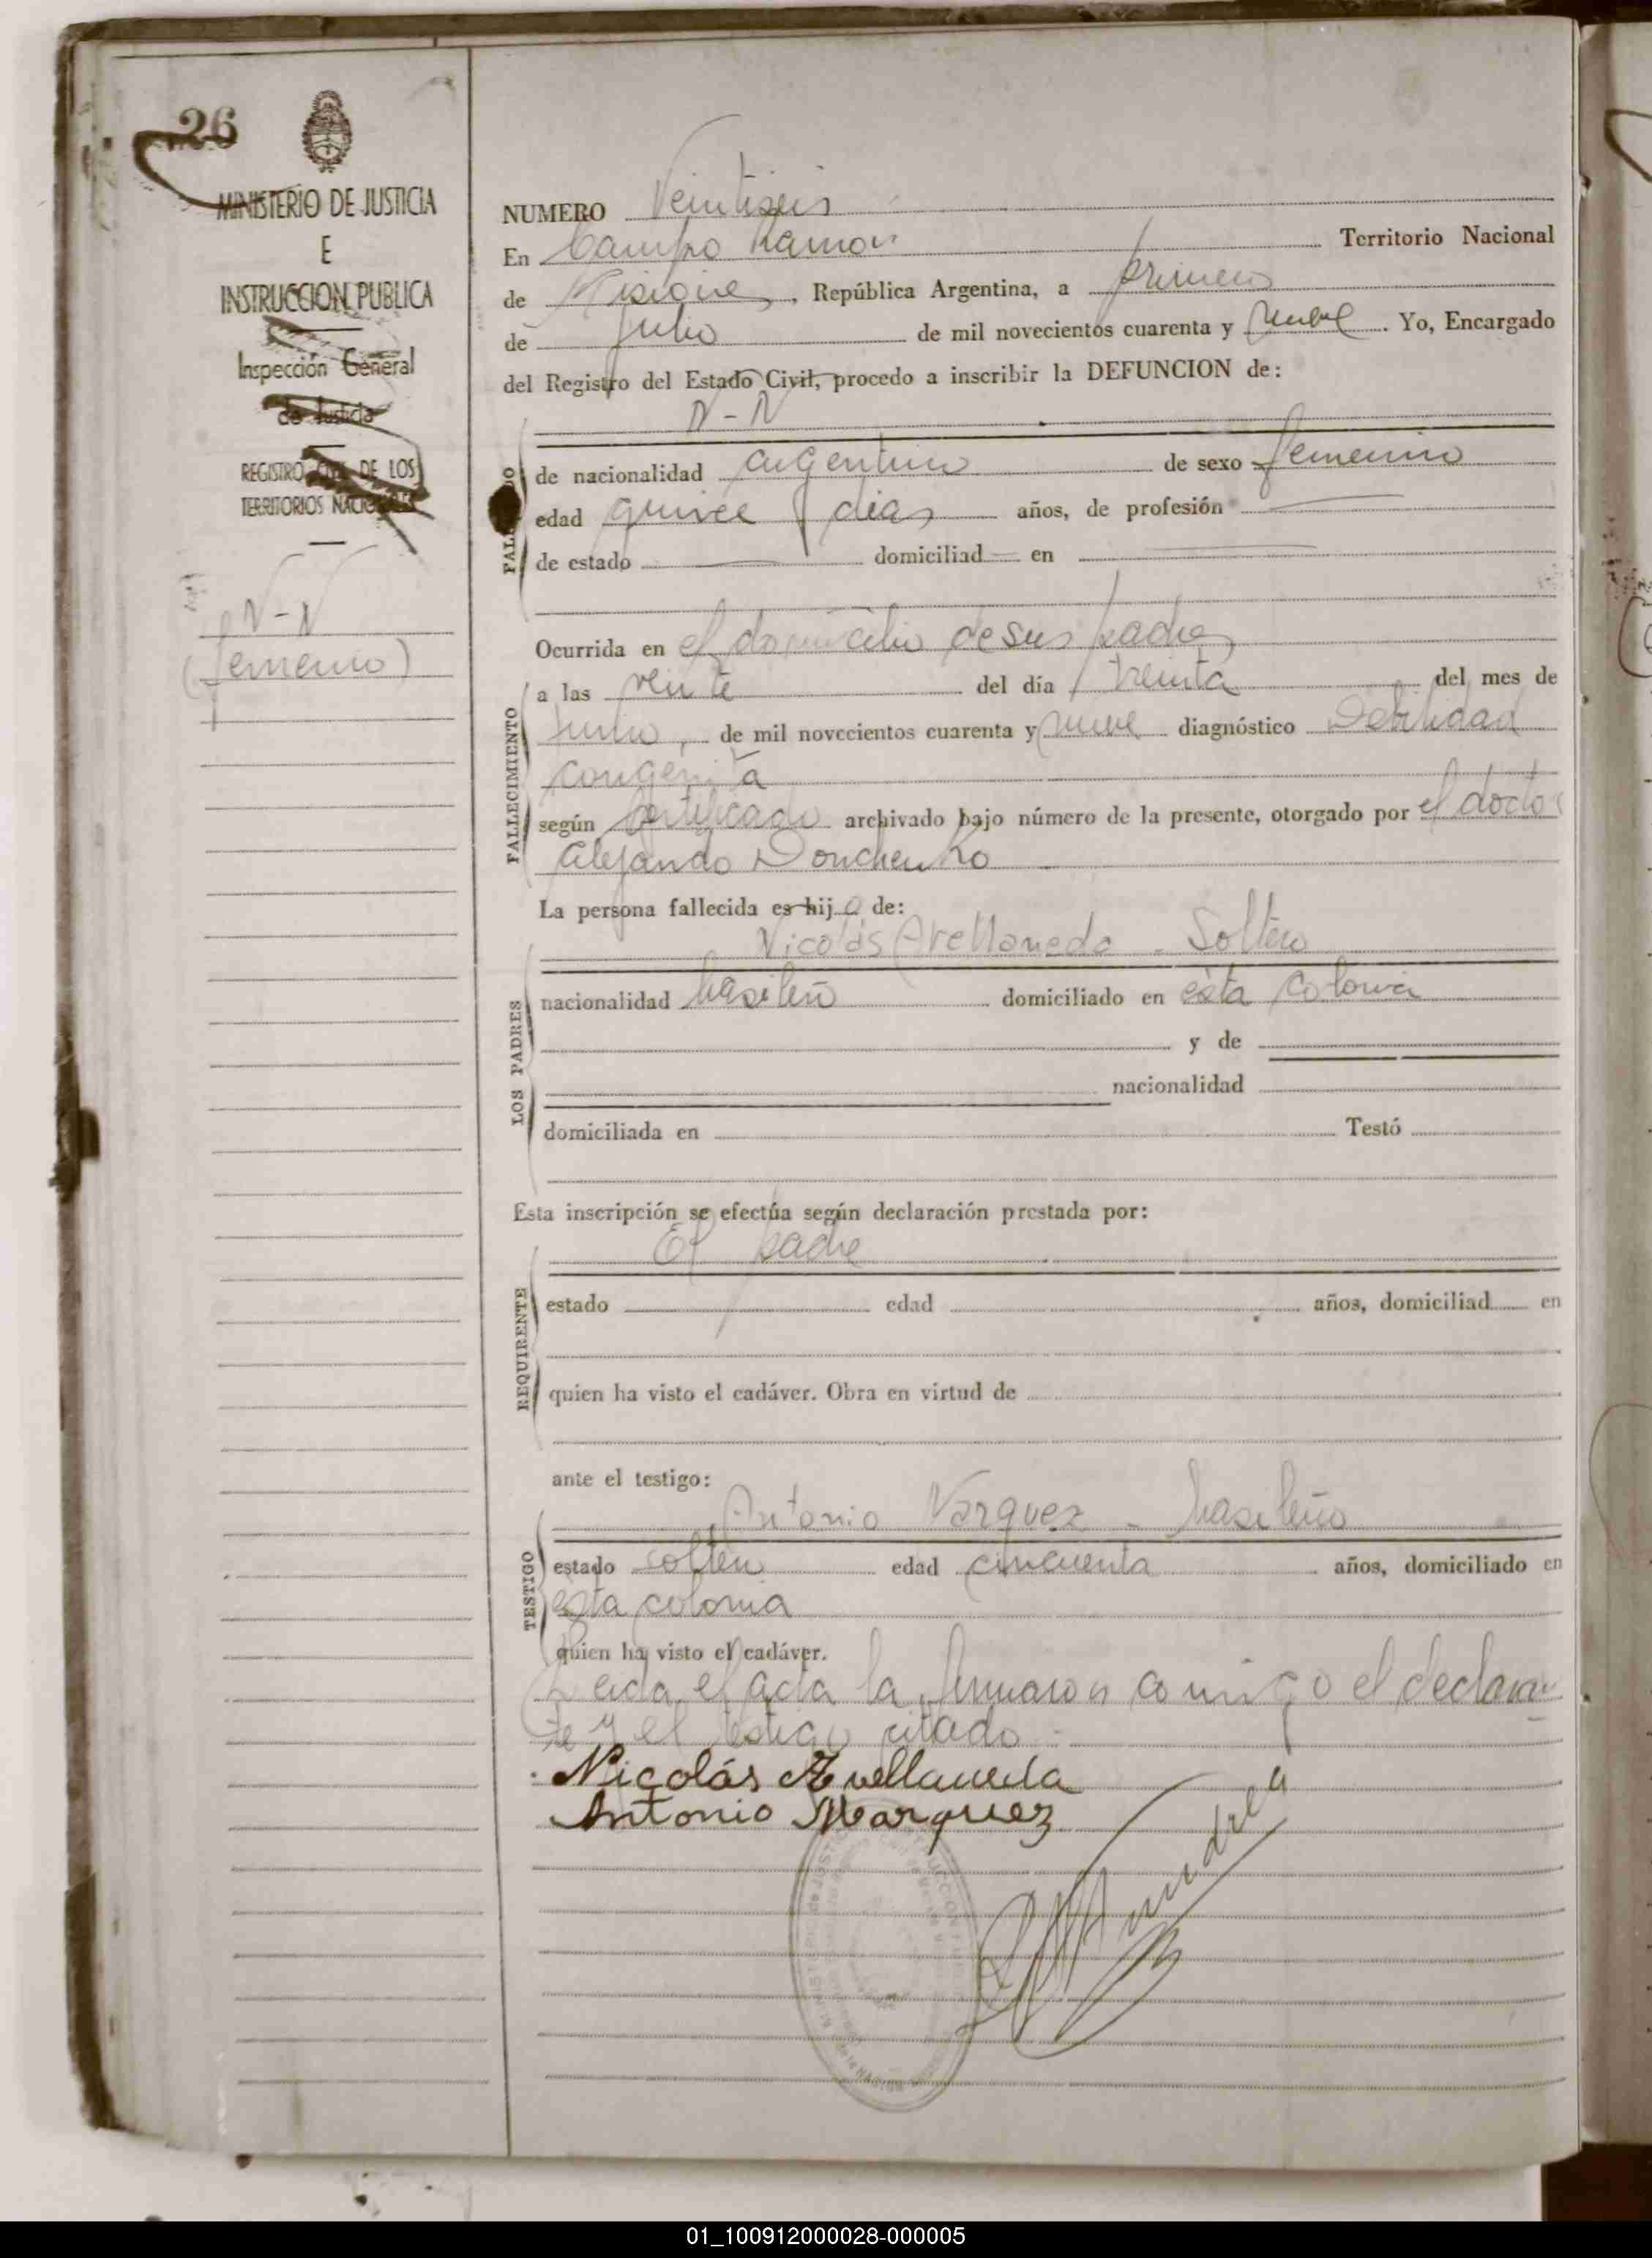 26
MINISTERIO DE JUSTICIA
E
INSTRUCCION PUBLICA
Inspección General
de Justicia
REGISTRO CIVIL DE LOS
TERRITORIOS NACIONALES
N-N
(femenino)
NUMERO Veintiseis
En Campo Ramon Territorio Nacional
de Misiones, República Argentina, a primero
de Julio de mil novecientos cuarenta y nueve. Yo, Encargado
del Registro del Estado Civil, procedo a inscribir la DEFUNCION de:
N-N
FALLECIDO
de nacionalidad argentino de sexo femenino
edad quince dias años, de profesión
de estado domiciliad en
Ocurrida en el domicilio de sus padres
FALLECIMIENTO
a las veinte del día treinta del mes de
Junio, de mil novecientos cuarenta y nueve diagnóstico Debilidad
congenita
según certificado archivado bajo número de la presente, otorgado por el doctor
Alejando Donchenko
La persona fallecida es hija de:
LOS PADRES
Nicolás Avellaneda - Soltero
nacionalidad brasileño domiciliado en ésta colonia
y de
nacionalidad
domiciliada en Testó
Esta inscripción se efectúa según declaración prestada por:
El padre
REQUIRENTE
estado edad años, domiciliad en
quien ha visto el cadáver. Obra en virtud de
ante el testigo:
TESTIGO
Antonio Varquez - brasileño
estado soltero edad cincuenta años, domiciliado en
esta colonia
quien ha visto el cadáver.
Leida el acta la firmaron conmigo el declaran
te y el testigo citado
Nicolás Avellaneda
Antonio Marquez
01_100912000028-000005